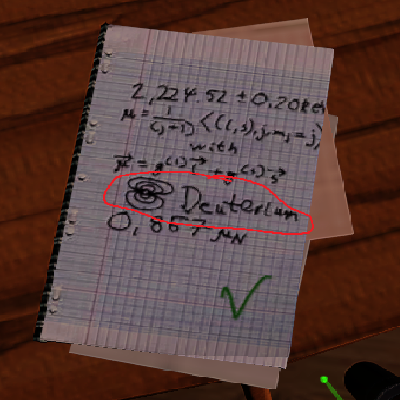 2,224.52 ± 0,20 keV
μ = 1/(j+1) <((l,s),j,mj=j)
with
μ⃗ = g(l) l⃗ + g(s) s⃗
Deuterium
0,857 μN